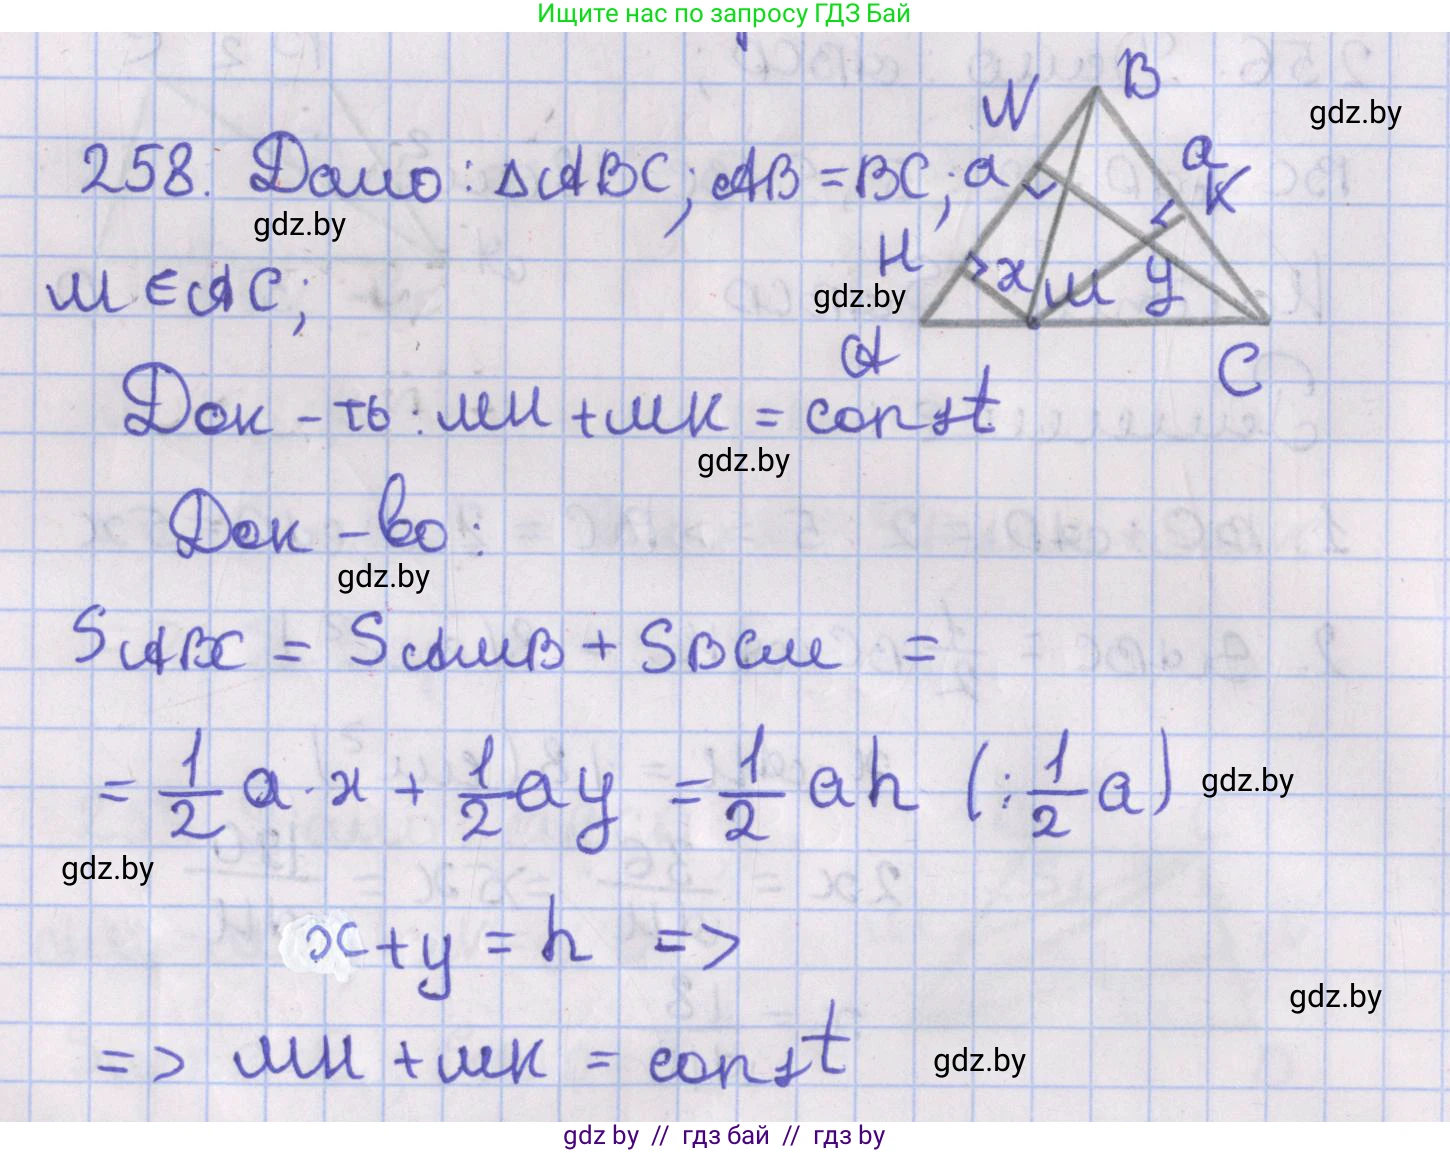 Ищите нас по запросу ГДЗ Бай
258. Дано: ΔABC; AB = BC;
M ∈ AC;
Док-ть: MH + MK = const
Док-во:
S ABC = S AMB + S BCM =
= 1/2 a · x + 1/2 ay = 1/2 ah (: 1/2 a)
x + y = h =>
=> MH + MK = const
B
N
a
a
K
H
x
M
y
A
C
gdz.by
gdz.by
gdz.by
gdz.by
gdz.by
gdz.by
gdz.by
gdz.by
gdz.by
gdz by // гдз бай // гдз by